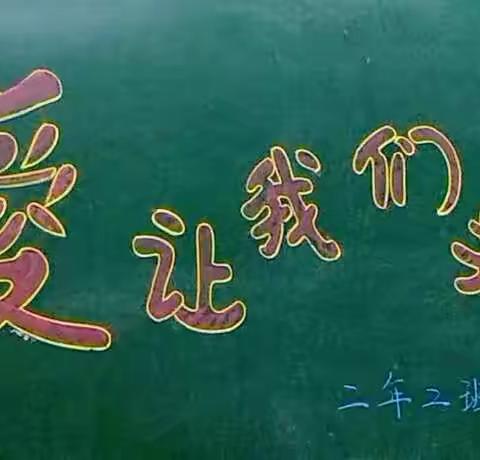 爱让我们
二年二班